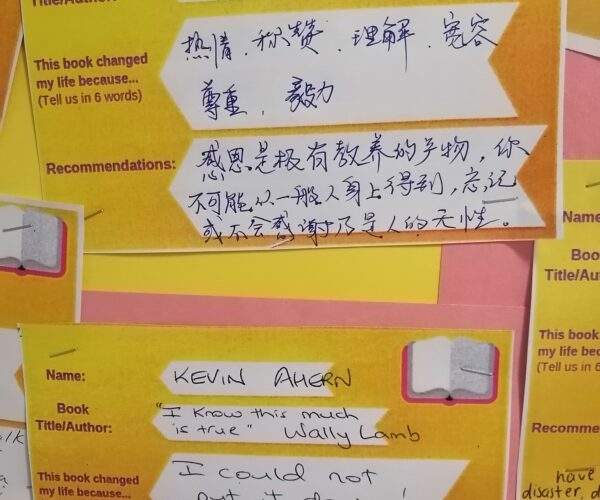 Title/Author:
This book changed
my life because...
(Tell us in 6 words)
热情、称赞、理解、宽容
尊重、毅力
Recommendations:
感恩是极有教养的产物,你
不可能从一般人身上得到,忘记
或不会感谢乃是人的天性。
Name:
KEVIN AHERN
Book
Title/Author:
"I know this much
is true" Wally Lamb
This book changed
my life because...
I could not
put it down!
Name
Book
Title/Au
This book
my life bec
(Tell us in 6
Recomme
have
disaster, d